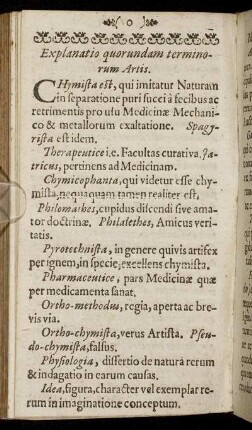 0
Explanatio quorundam termino-
rum Artis.
CHymista est, qui imitatur Naturam
in separatione puri succi à fecibus ac
retrimentis pro usu Medicinæ Mechani-
co & metallorum exaltatione. Spagy-
rista est idem.
Therapeutice i.e. Facultas curativa. Ja-
tricus, pertinens ad Medicinam.
Chymicophanta, qui videtur esse chy-
mista, nequaquam tamen realiter est.
Philomathes, cupidus discendi sive ama-
tor doctrinæ. Philalethes, Amicus veri-
tatis.
Pyrotechnista, in genere quivis artifex
per ignem, in specie, excellens chymista.
Pharmaceutice, pars Medicinæ quæ
per medicamenta sanat.
Ortho-methodus, regia, aperta ac bre-
vis via.
Ortho-chymista, verus Artista. Pseu-
do-chymista, falsus.
Physologia, dissertio de natura rerum
& indagatio in earum causas.
Idea, figura, character vel exemplar re-
rum in imaginatione conceptum.